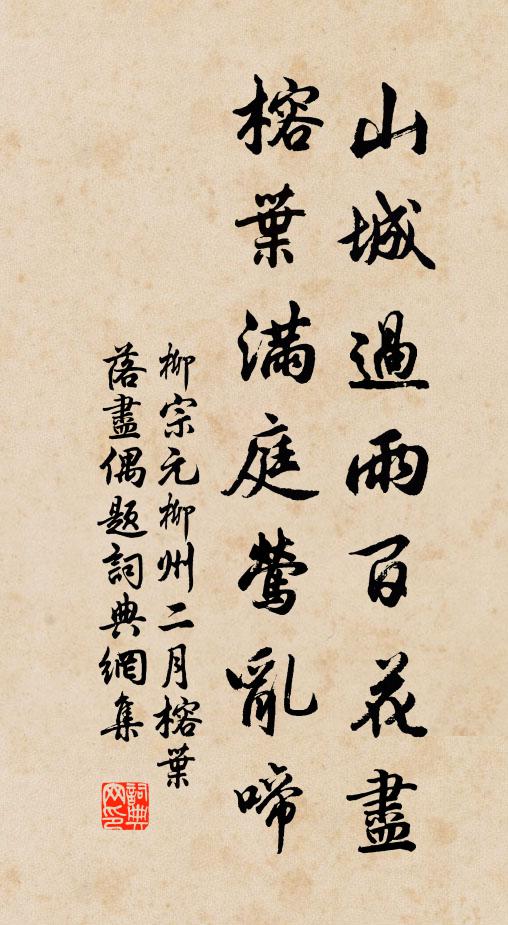 山城過雨百花盡
榕葉滿庭鶯亂啼
柳宗元柳州二月榕葉
落盡偶題詞典網集
詞典
网印